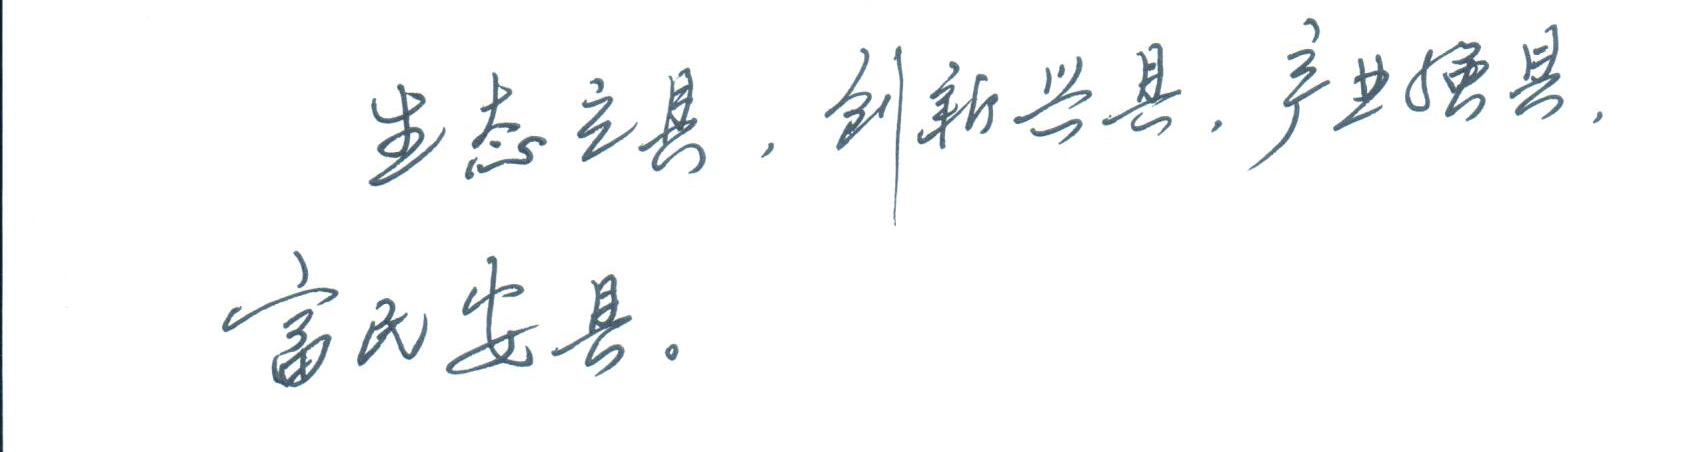 生态立县，创新兴县，产业强县，
富民安县。